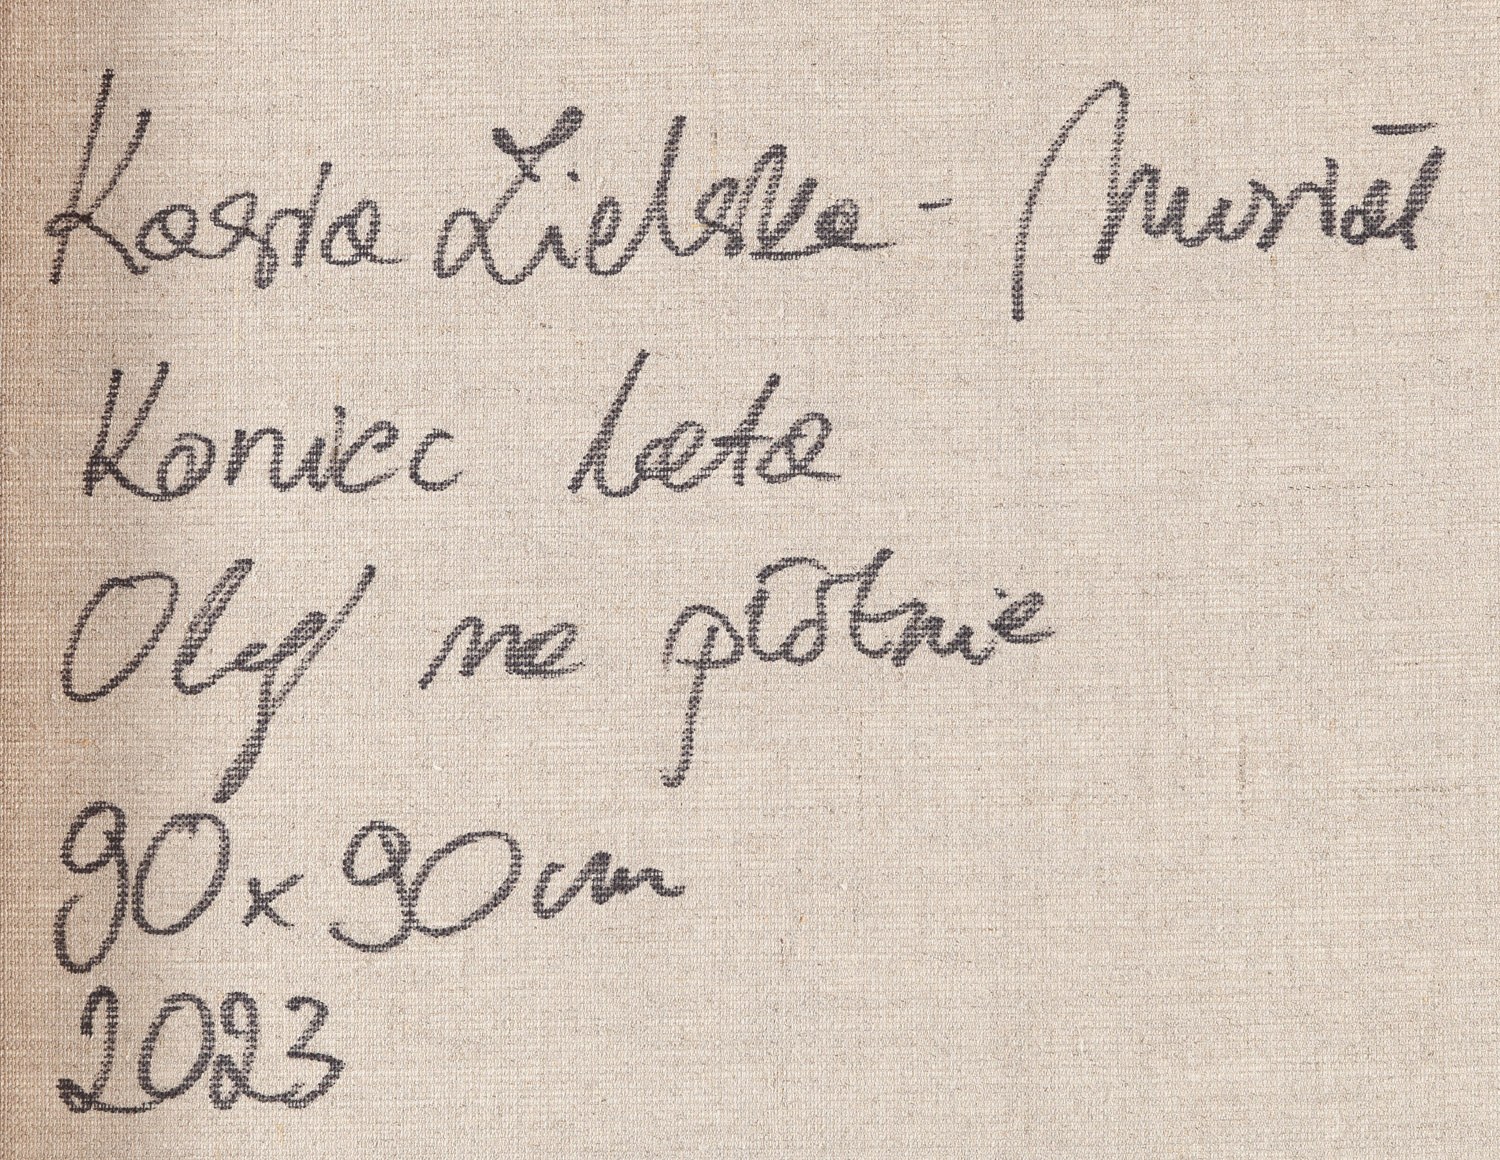 Kasia Zielska - Musiał
Koniec lata
Olej na płótnie
90x90cm
2023